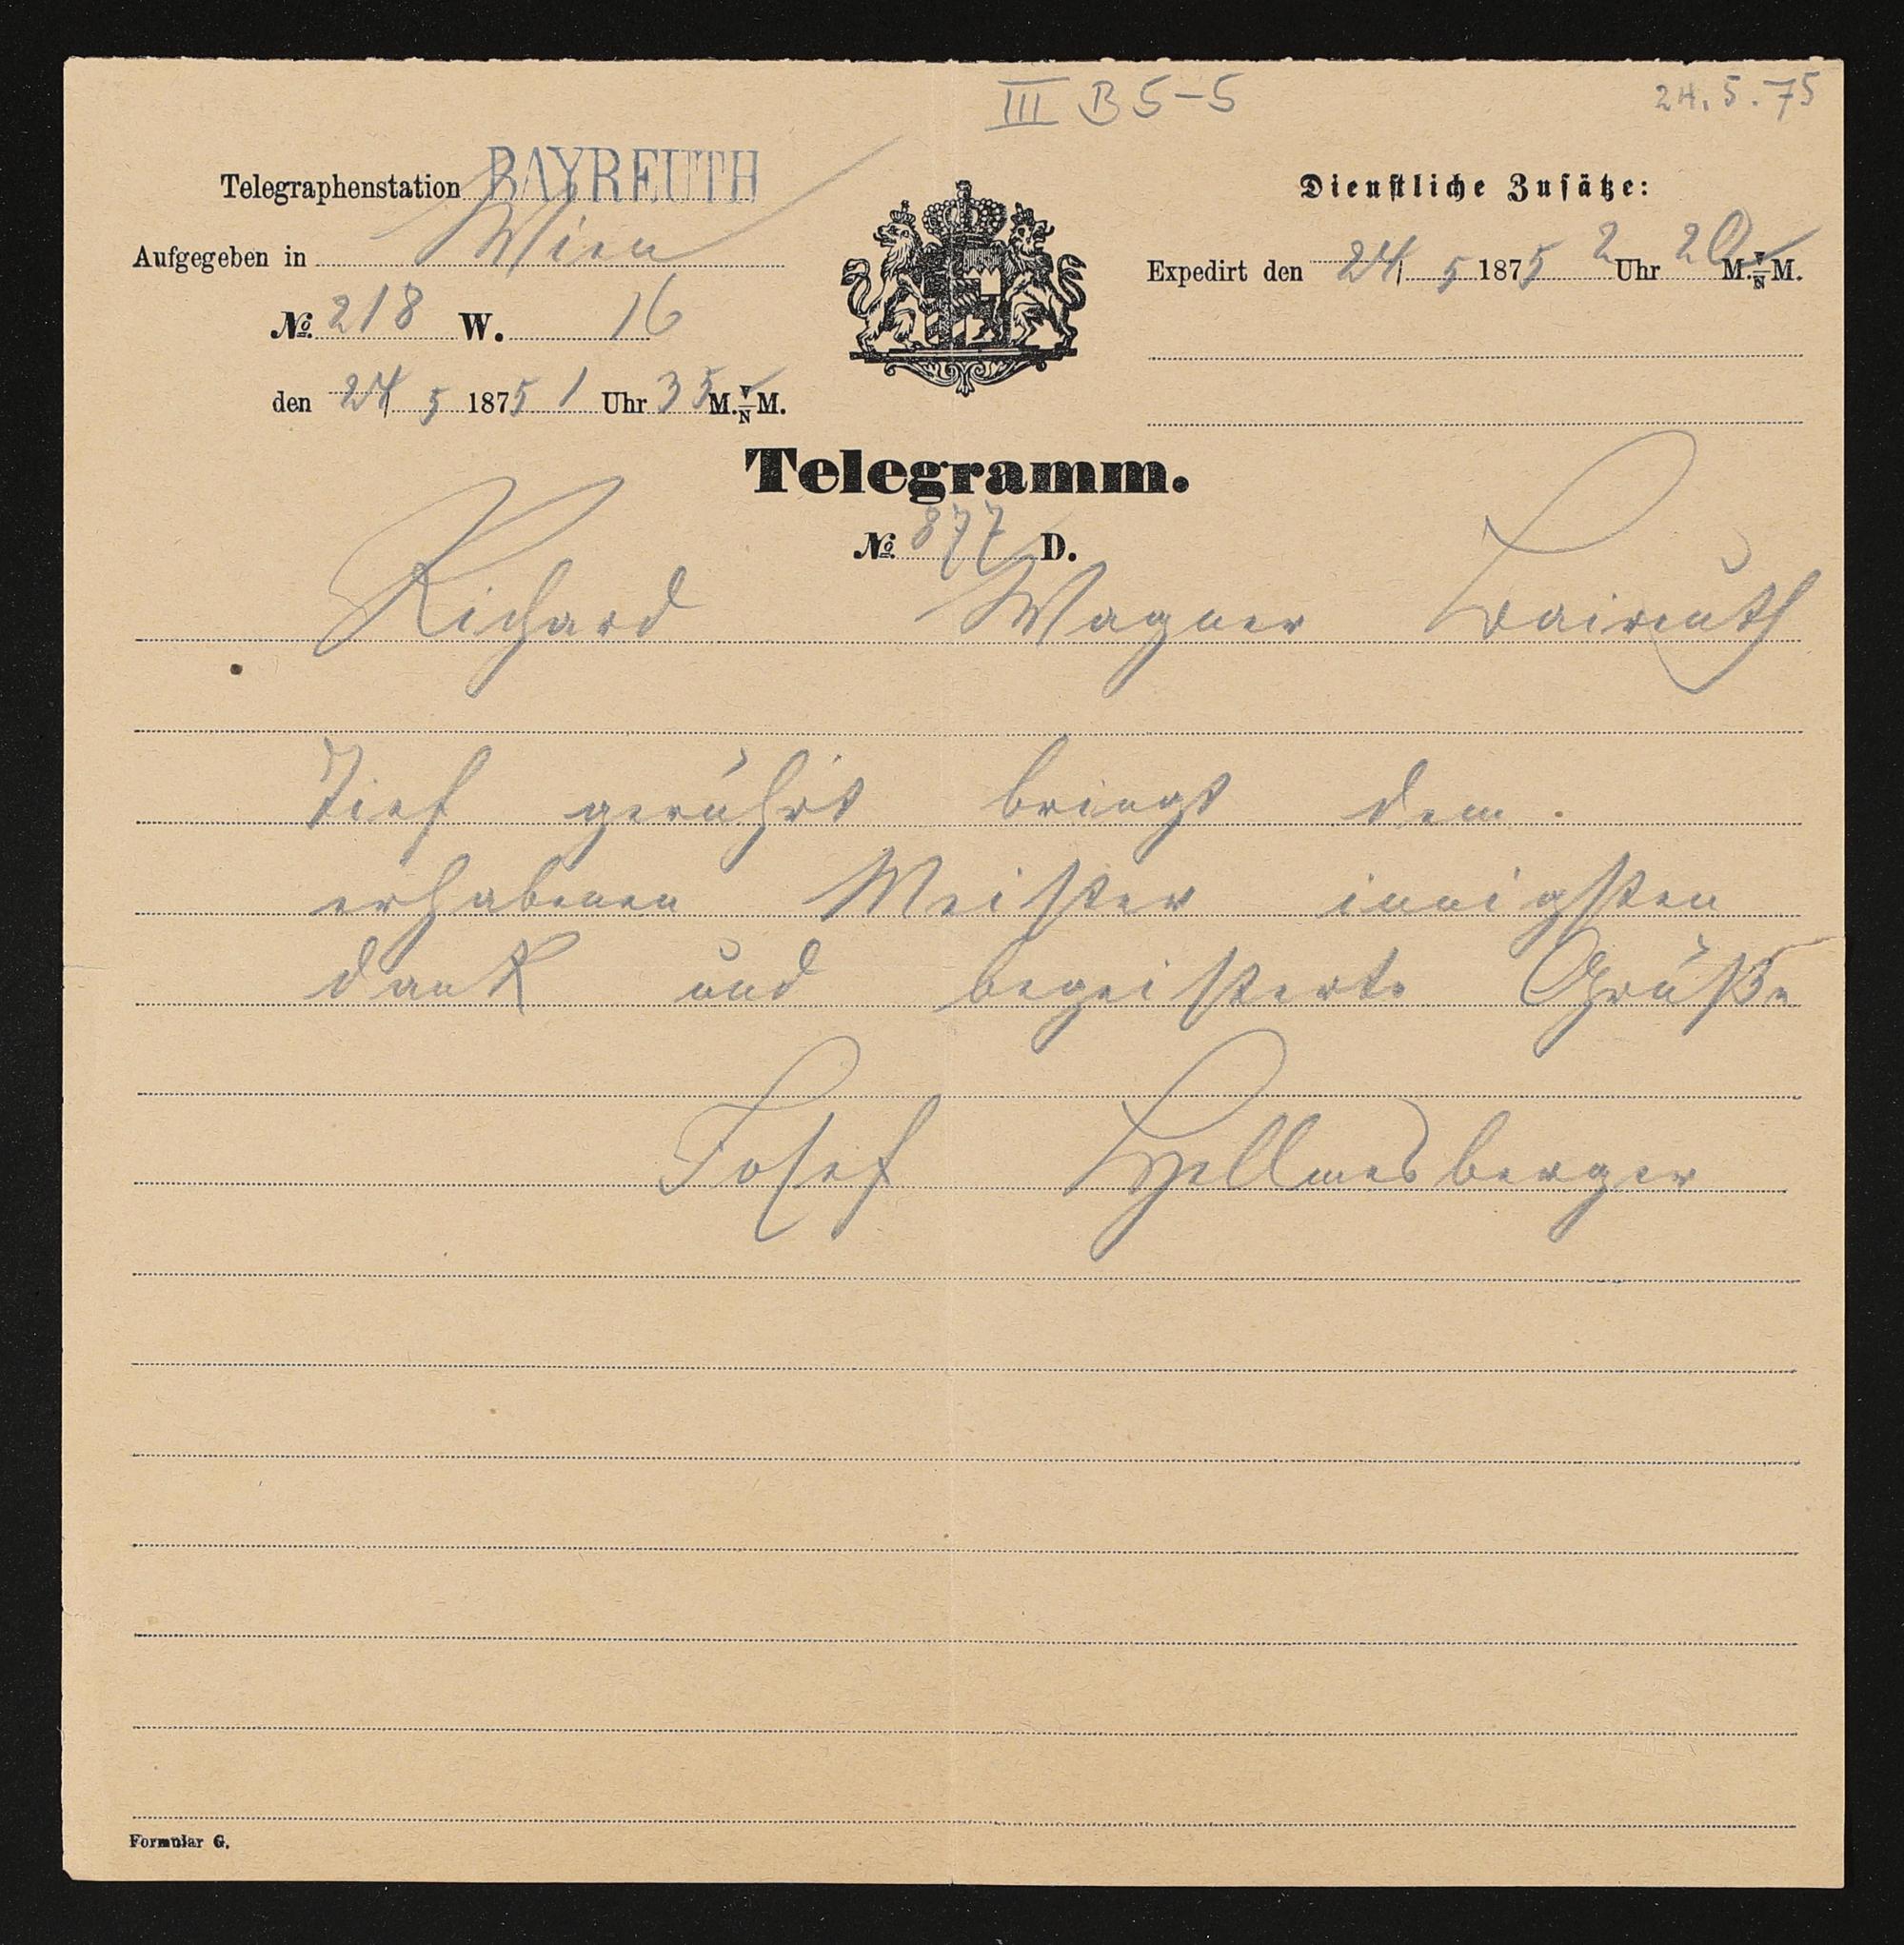 III B 5-5
24.5.75
Telegraphenstation BAYREUTH
Aufgegeben in Wien
№ 218 W. 16
den 24/5 1875 1 Uhr 35 M. V/N M.
Dienstliche Zusätze:
Expedirt den 24/5 1875 2 Uhr 20 M. V/N M.
Telegramm.
№ 877 D.
Richard Wagner Baireuth
Tief gerührt bringt dem
erhabenen Meister innigsten
dank und begeisterte Grüße
Josef Hellmesberger
Formular G.